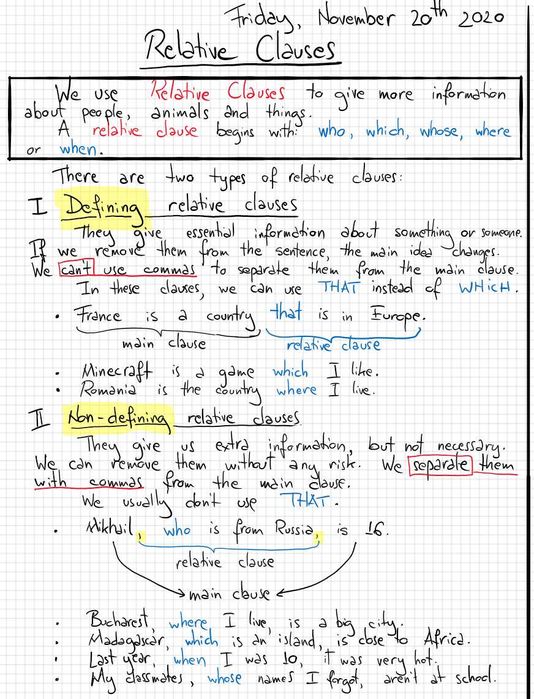 Friday, November 20th 2020
Relative Clauses
We use Relative Clauses to give more information
about people, animals and things.
A relative clause begins with: who, which, whose, where
or when.
There are two types of relative clauses:
I Defining relative clauses
They give essential information about something or someone.
If we remove them from the sentence, the main idea changes.
We can't use commas to separate them from the main clause.
In these clauses, we can use THAT instead of WHICH.
• France is a country that is in Europe.
main clause relative clause
• Minecraft is a game which I like.
• Romania is the country where I live.
II Non-defining relative clauses
They give us extra information, but not necessary.
We can remove them without any risk. We separate them
with commas from the main clause.
We usually don't use THAT.
• Mikhail, who is from Russia, is 16.
relative clause
main clause
• Bucharest, where I live, is a big city.
• Madagascar, which is an island, is close to Africa.
• Last year, when I was 10, it was very hot.
• My classmates, whose names I forgot, aren't at school.